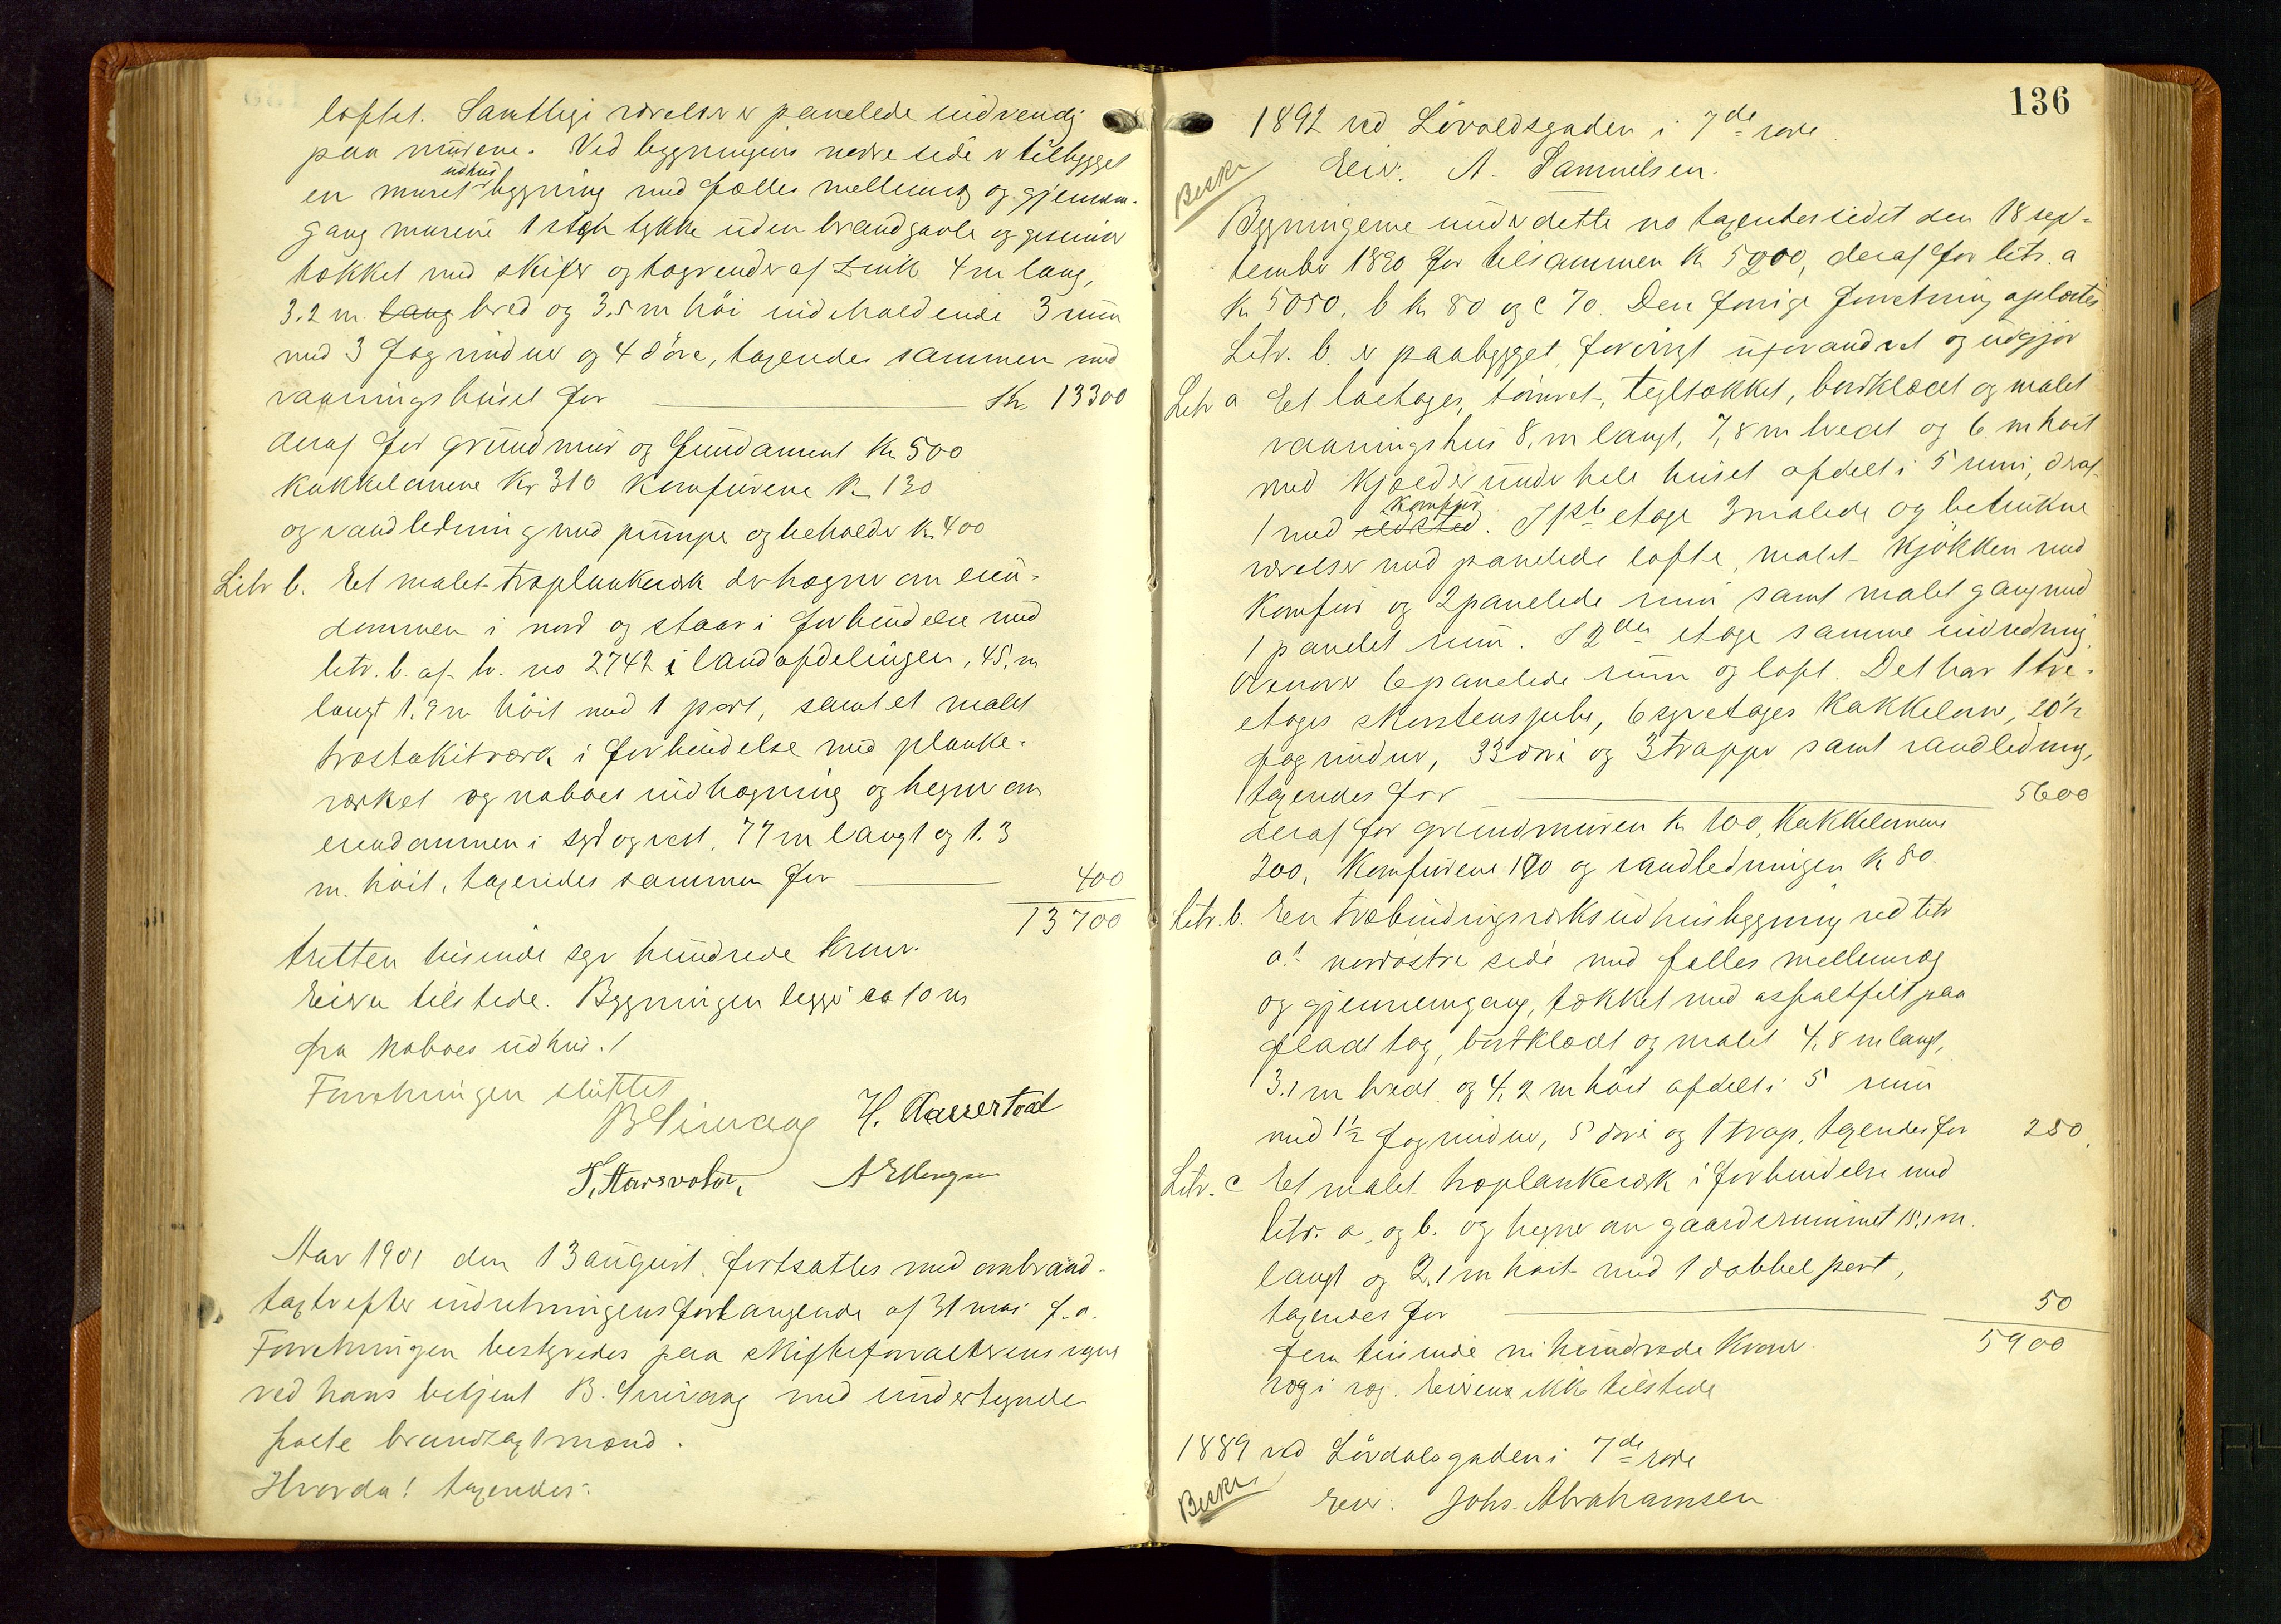 loftet. Samtlige værelser er panelede indvendig
paa murene. Ved bygningens nedre side er tilbygget
en muret udhusbygning med fælles mellemvæg og gjennem-
gang murene 1 sten tykke uden brandgavle og gesimser
tækket med skifer og tagrender af zink 4 m lang,
3.2 m lang bred og 3.5 m höi indeholdende 3 rum
med 3 fag vinduer og 4 döre, taxeredes sammen med
vaaningshuset for Kr 13300
deraf for grundmur og fundament Kr 500
kakkelovnene Kr 310 komfurene Kr 130
og vandledning med pumpe og beholder Kr 400
Litr b. Et malet træplankeværk der hegner om eien-
dommen i nord og staar i forbindelse med
litr. b. af br. no 2742 i landafdelingen, 45, m
langt 1.9 m höit med 1 port, samt et malet
træstakitværk i forbindelse med planke-
værket og naboens indhegning og hegner om
eiendommen i syd og vest, 77 m langt og 1.3
m. höit, taxeredes sammen for 400
13700
tretten tusinde syv hundrede Kroner.
Eieren tilstede. Bygningen ligger ca 10 m
fra naboens udhus. /
Forretningen sluttet
H. Aasertad
Aar 1901 den 13 august. fortsattes med ombrand-
taxt efter indretningens forlangende af 31 mai f. a.
Forretningen bestyredes paa skifteforvalterens vegne
ved hans betjent B. med undertegnede
faste brandtaxtmænd.
Hvorda! taxeredes:
136
1892 ved Lövoldsgaden i 7de rode
Eier. A. Samuelsen.
Beskr
Bygningerne under dette no taxeredes sidst den 18 sep-
tember 1890 for tilsammen Kr 5200, deraf for litr. a
Kr 5050, b Kr 80 og c 70. Den forrige forretning oplæstes.
Litr. b. er paabygget, forövrigt uforandret og udgjör
Litr a Et toetages, tömret, tegltækket, bordklædt og malet
vaaningshus 8, m langt, 7,8 m bredt og 6 m höit
med kjælder under hele huset afdelt i 5 rum, deraf
1 med ildsted komfur. I 1ste etage 3 malede og betrukne
værelser med panelede lofte, malet kjökken med
komfur og 2 panelede rum samt malet gang med
1 panelet rum. I 2den etage samme indredning
Ovenover 6 panelede rum og loft. Det har 1 tre-
etages skorstenspibe, 6 syvetages kakkelovne, 20 1/2
fag vinduer, 33 döre og 3 trapper samt vandledning,
taxeredes for 5600
deraf for grundmuren Kr 100, kakkelovnene
200, komfurene 190 og vandledningen Kr 80.
Litr. b. En træbindingsværks udhusbygning ved litr
a! nordöstre side med fælles mellemvæg
og gjennemgang, tækket med asfaltfilt paa
fladt tag, bordklædt og malet 4,8 m langt,
3.1 m bredt og 4,2 m höit afdelt i 5 rum
med 1 1/2 fag vinduer, 5 döre og 1 trap, taxeredes for 250.
Litr. c Et malet træplankeværk i forbindelse med
litr. a, og b. og hegner om gaardsrummet 15,1 m.
langt og 2,1 m höit med 1 dobbel port,
taxeredes for 50
5900
fem tusinde ni hundrede Kroner.
Eieren ikke tilstede
1889 ved Lövdalsgaden i 7de rode
Beskr
Eier. Johs. Abrahamsen